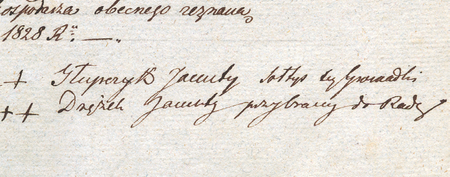 ospodarza obecnego zeznana
1828 R. —
+ Słupczyk Jacenty sołtys tey Gromadki
++ Drężek Jacenty przybrany do Rady